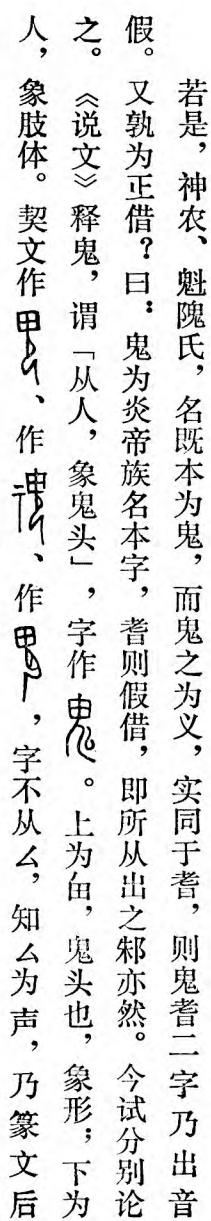 若是，神农、魁隗氏，名既本为鬼，而鬼之为义，实同于耆，则鬼耆二字乃出音
假。又孰为正借？曰：鬼为炎帝族名本字，耆则假借，即所从出之邾亦然。今试分别论
之。《说文》释鬼，谓「从人，象鬼头」，字作。上为甶，鬼头也，象形；下为
人，象肢体。契文作、作、作，字不从厶，知厶为声，乃篆文后